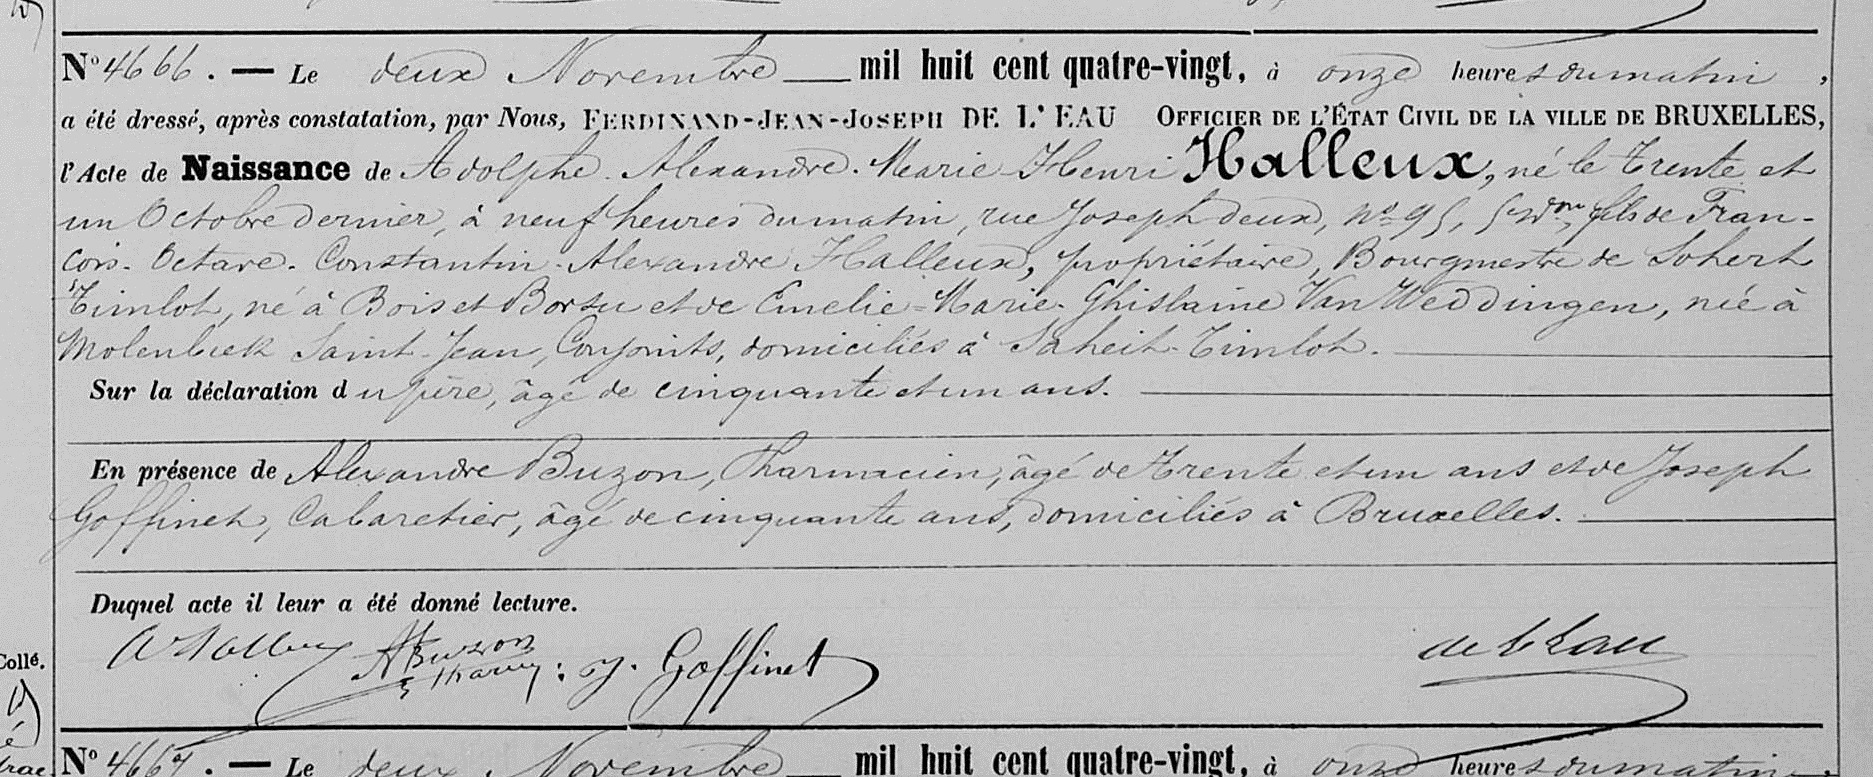 N° 4666. — Le deux Novembre — mil huit cent quatre-vingt, à onze heures du matin,
a été dressé, après constatation, par Nous, FERDINAND-JEAN-JOSEPH DE L'EAU OFFICIER DE L'ÉTAT CIVIL DE LA VILLE DE BRUXELLES,
l'Acte de Naissance de Adolphe. Alexandre. Marie Henri Halleux, né le trente et
un Octobre dernier, à neuf heures du matin, rue Joseph deux, n° 95, 5e Don, fils de Fran-
cois. Octave. Constantin. Alexandre Halleux, propriétaire, Bourgmestre de Soheit
Tinlot, né à Bois et Borsu et de Emelie-Marie-Ghislaine Van Weddingen, née à
Molenbeek Saint-Jean, Conjoints, domiciliés à Saheit-Tinlot.
Sur la déclaration du père, âgé de cinquante et un ans.
En présence de Alexandre Buzon, Pharmacien, âgé de trente et un ans et de Joseph
Goffinet, Cabaretier, âgé de cinquante ans, domiciliés à Bruxelles.
Duquel acte il leur a été donné lecture.
A Halleux ABuzon Pharm: J. Goffinet de L'Eau
Collé.
N° 4667. — Le deux Novembre — mil huit cent quatre-vingt, à onze heures du matin,